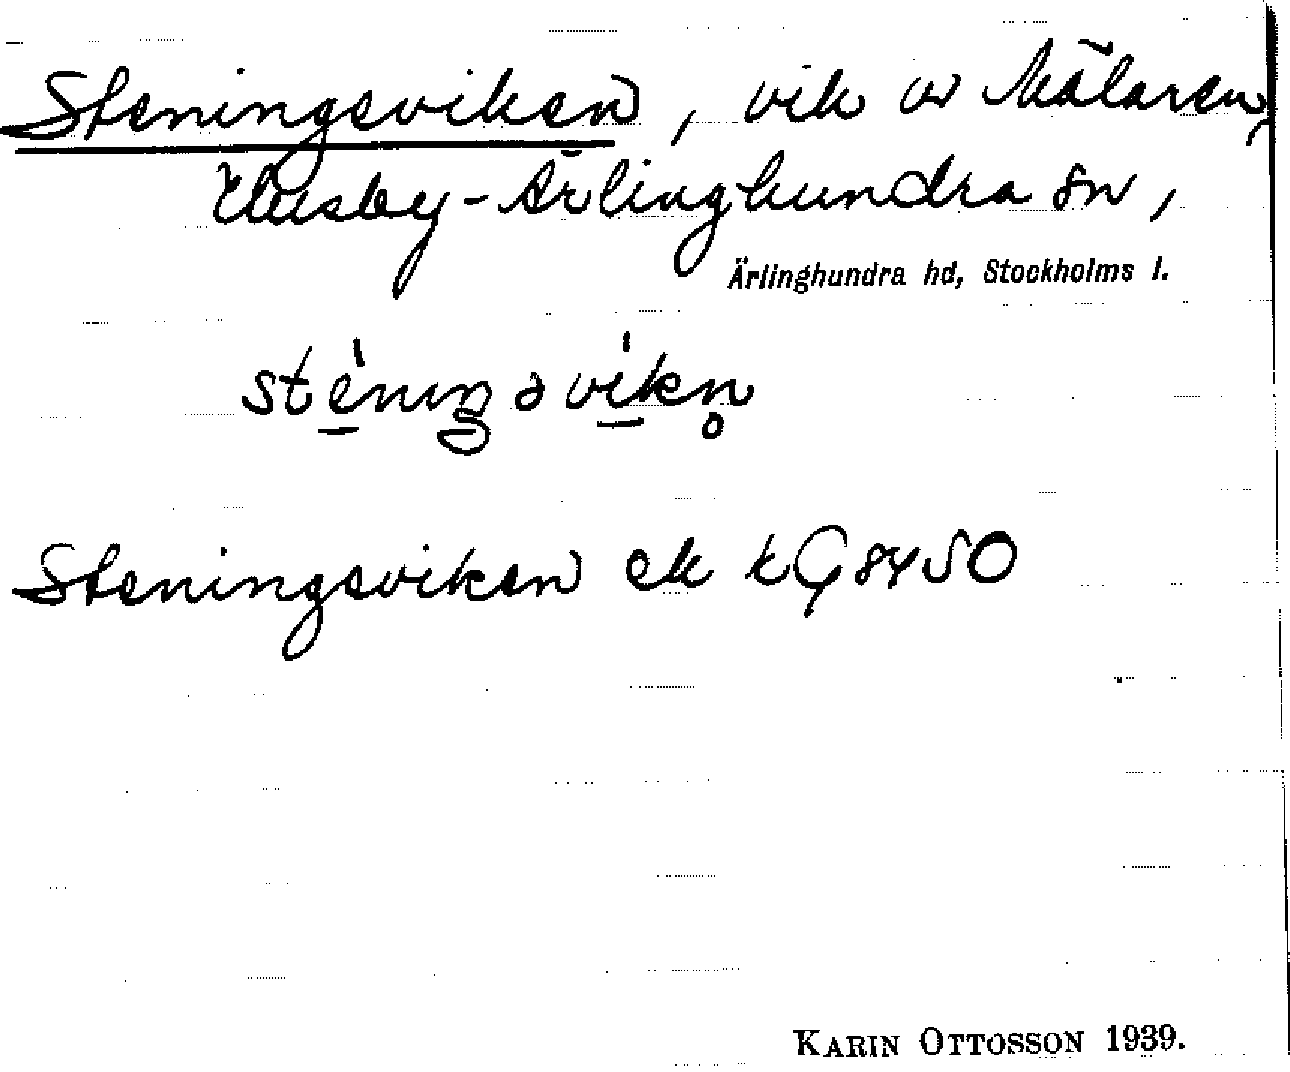 Steningsviken, vik av Mälaren,
Husby-Ärlinghundra sn,
Ärlinghundra hd, Stockholms l.
Steningsviken ek kG 8450
KARIN OTTOSSON 1939.